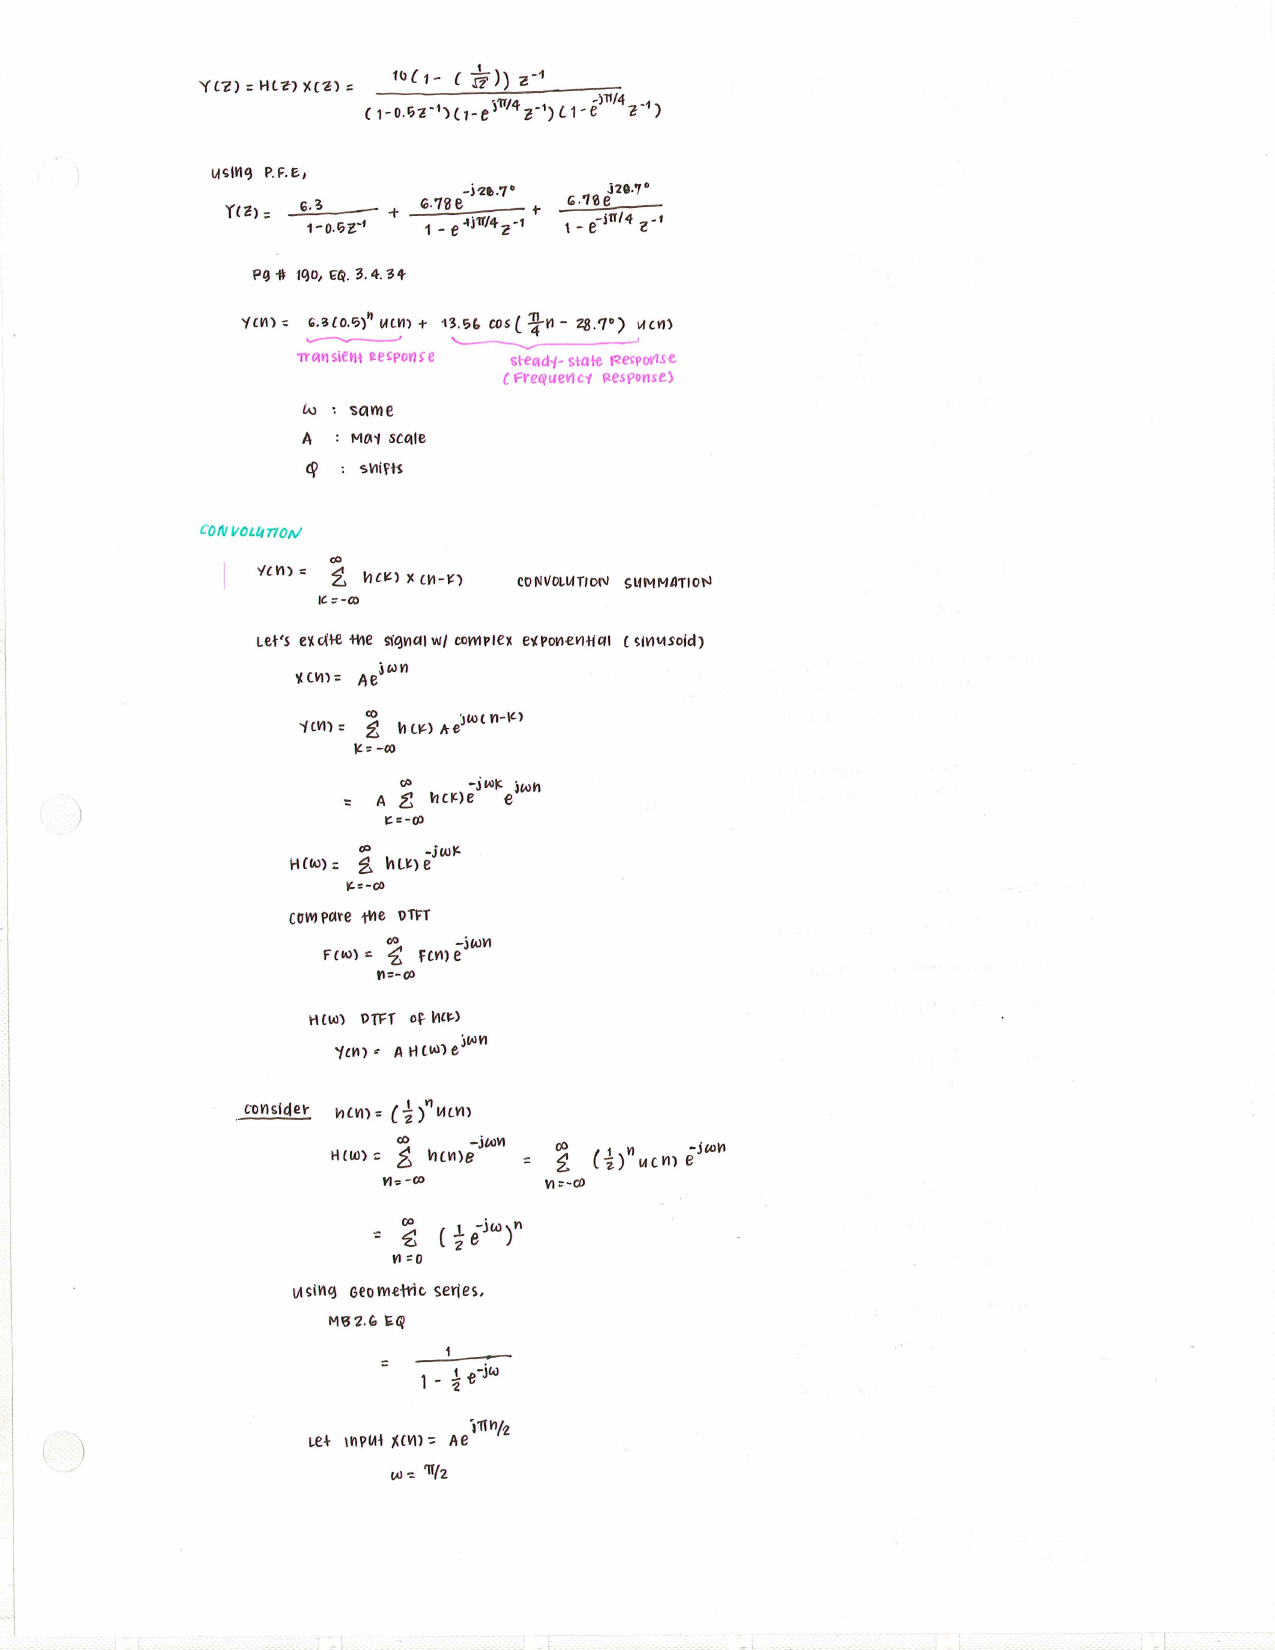 Y(Z) = H(Z) X(Z) = 10(1 - (1/√2)) z^-1 / (1-0.5z^-1)(1-e^jπ/4 z^-1)(1-e^-jπ/4 z^-1)
using P.F.E,
Y(Z) = 6.3 / 1-0.5z^-1 + 6.78e^-j28.7° / 1 - e^+jπ/4 z^-1 + 6.78e^j28.7° / 1 - e^-jπ/4 z^-1
Pg # 190, EQ. 3.4.34
Y(n) = 6.3(0.5)^n u(n) + 13.56 cos(π/4 n - 28.7°) u(n)
Transient Response
steady-state Response
(Frequency Response)
ω : same
A : May scale
φ : shifts
CONVOLUTION
Y(n) = ∞ Σ k=-∞ h(k) x(n-k) CONVOLUTION SUMMATION
Let's excite the signal w/ complex exponential (sinusoid)
X(n) = Ae^jωn
Y(n) = ∞ Σ k=-∞ h(k) Ae^jω(n-k)
= A ∞ Σ k=-∞ h(k)e^-jωk e^jωn
H(ω) = ∞ Σ k=-∞ h(k)e^-jωk
compare the DTFT
F(ω) = ∞ Σ n=-∞ F(n)e^-jωn
H(ω) DTFT of h(k)
Y(n) = A H(ω)e^jωn
consider h(n) = (1/2)^n u(n)
H(ω) = ∞ Σ n=-∞ h(n)e^-jωn = ∞ Σ n=-∞ (1/2)^n u(n) e^-jωn
= ∞ Σ n=0 (1/2 e^-jω)^n
using Geometric series,
MB 2.6 EQ
= 1 / 1 - 1/2 e^-jω
Let input X(n) = Ae^jπn/2
ω = π/2